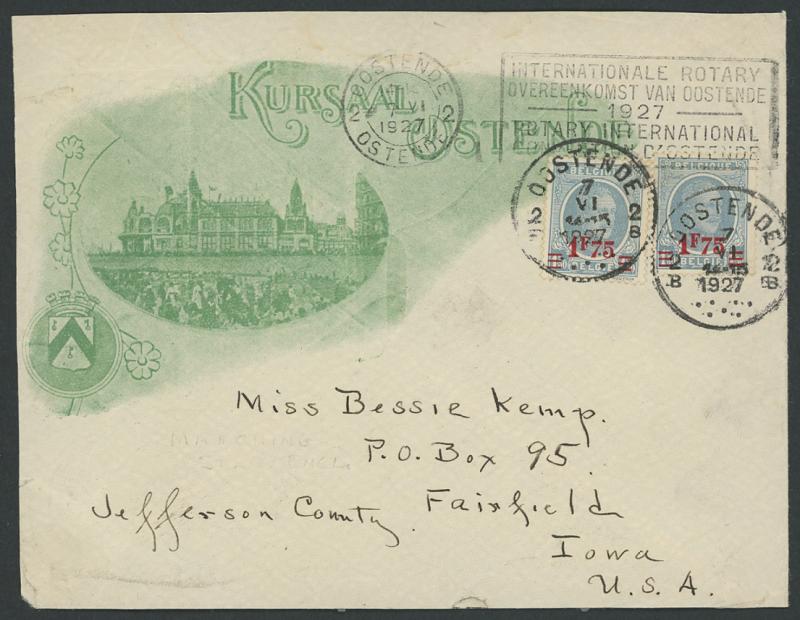 KURSAAL
OSTENDE
OOSTENDE
2 7 VI 2
1927
OSTENDE
INTERNATIONALE ROTARY
OVEREENKOMST VAN OOSTENDE
1927
ROTARY INTERNATIONAL
D'OSTENDE
BELGIQUE
BELGIQUE
OOSTENDE
7
VI
2 2
1927
B
1F75
BELGIË
OOSTENDE
7
VI
2 2
B B
1927
1F75
BELGIË
Miss Bessie Kemp.
P.O. Box 95.
Jefferson County, Fairfield
Iowa
U.S.A.